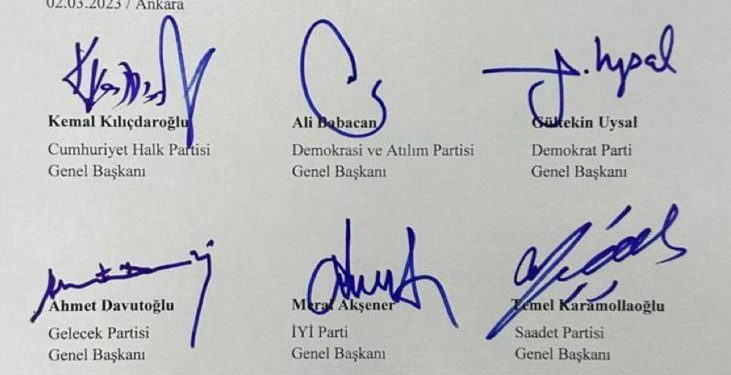 02.03.2023 / Ankara
Kemal Kılıçdaroğlu
Cumhuriyet Halk Partisi
Genel Başkanı
Ali Babacan
Demokrasi ve Atılım Partisi
Genel Başkanı
Gültekin Uysal
Demokrat Parti
Genel Başkanı
Ahmet Davutoğlu
Gelecek Partisi
Genel Başkanı
Meral Akşener
İYİ Parti
Genel Başkanı
Temel Karamollaoğlu
Saadet Partisi
Genel Başkanı